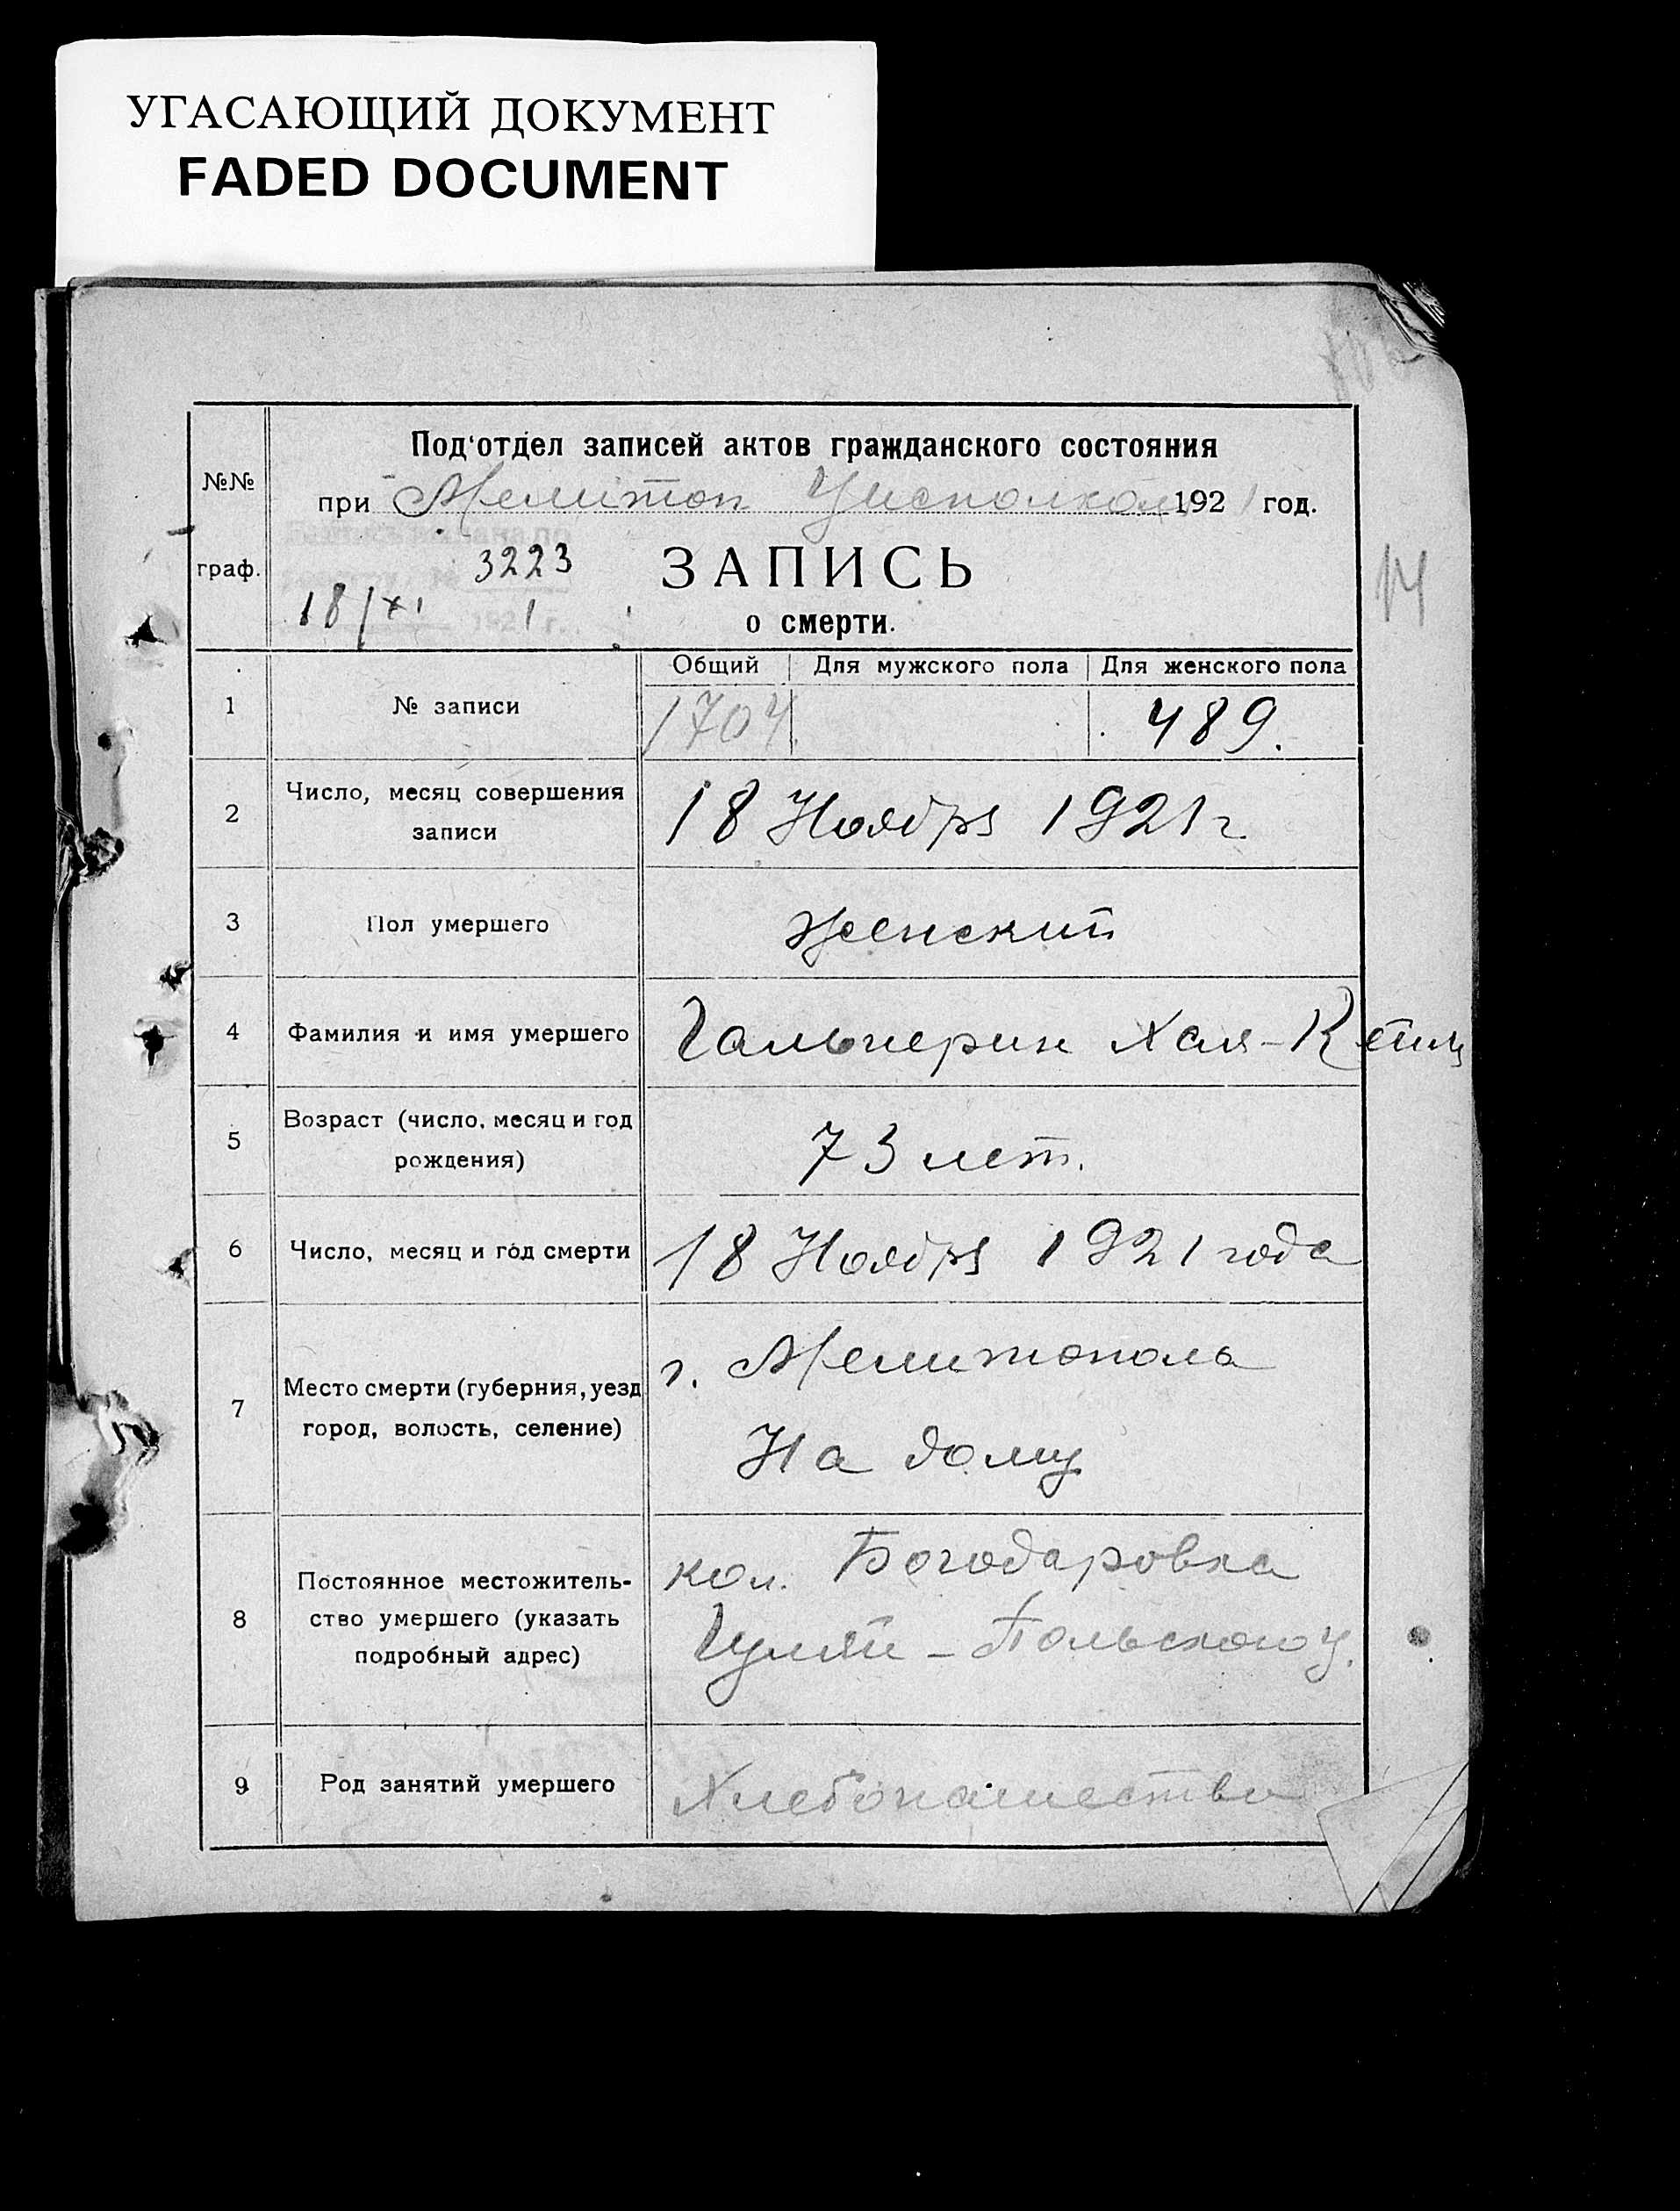 УГАСАЮЩИЙ ДОКУМЕНТ
FADED DOCUMENT
Под'отдел записей актов гражданского состояния
№№
при Мелитоп Уисполком 1921 год.
3223
ЗАПИСЬ
граф.
18/XI 1921 г.
о смерти.
14
Общий Для мужского пола Для женского пола
1 № записи 1704 489.
2 Число, месяц совершения
записи
18 Ноября 1921 г.
3 Пол умершего женский
4 Фамилия и имя умершего Гальперин Хая-
5 Возраст (число, месяц и год
рождения)
73 лет.
6 Число, месяц и год смерти 18 Ноября 1921 года
7 Место смерти (губерния, уезд
город, волость, селение)
г. Мелитополь
На дому
8 Постоянное местожитель-
ство умершего (указать
подробный адрес)
кол. Богодаровка
Гуляй-Польского у.
9 Род занятий умершего Хлебопашество